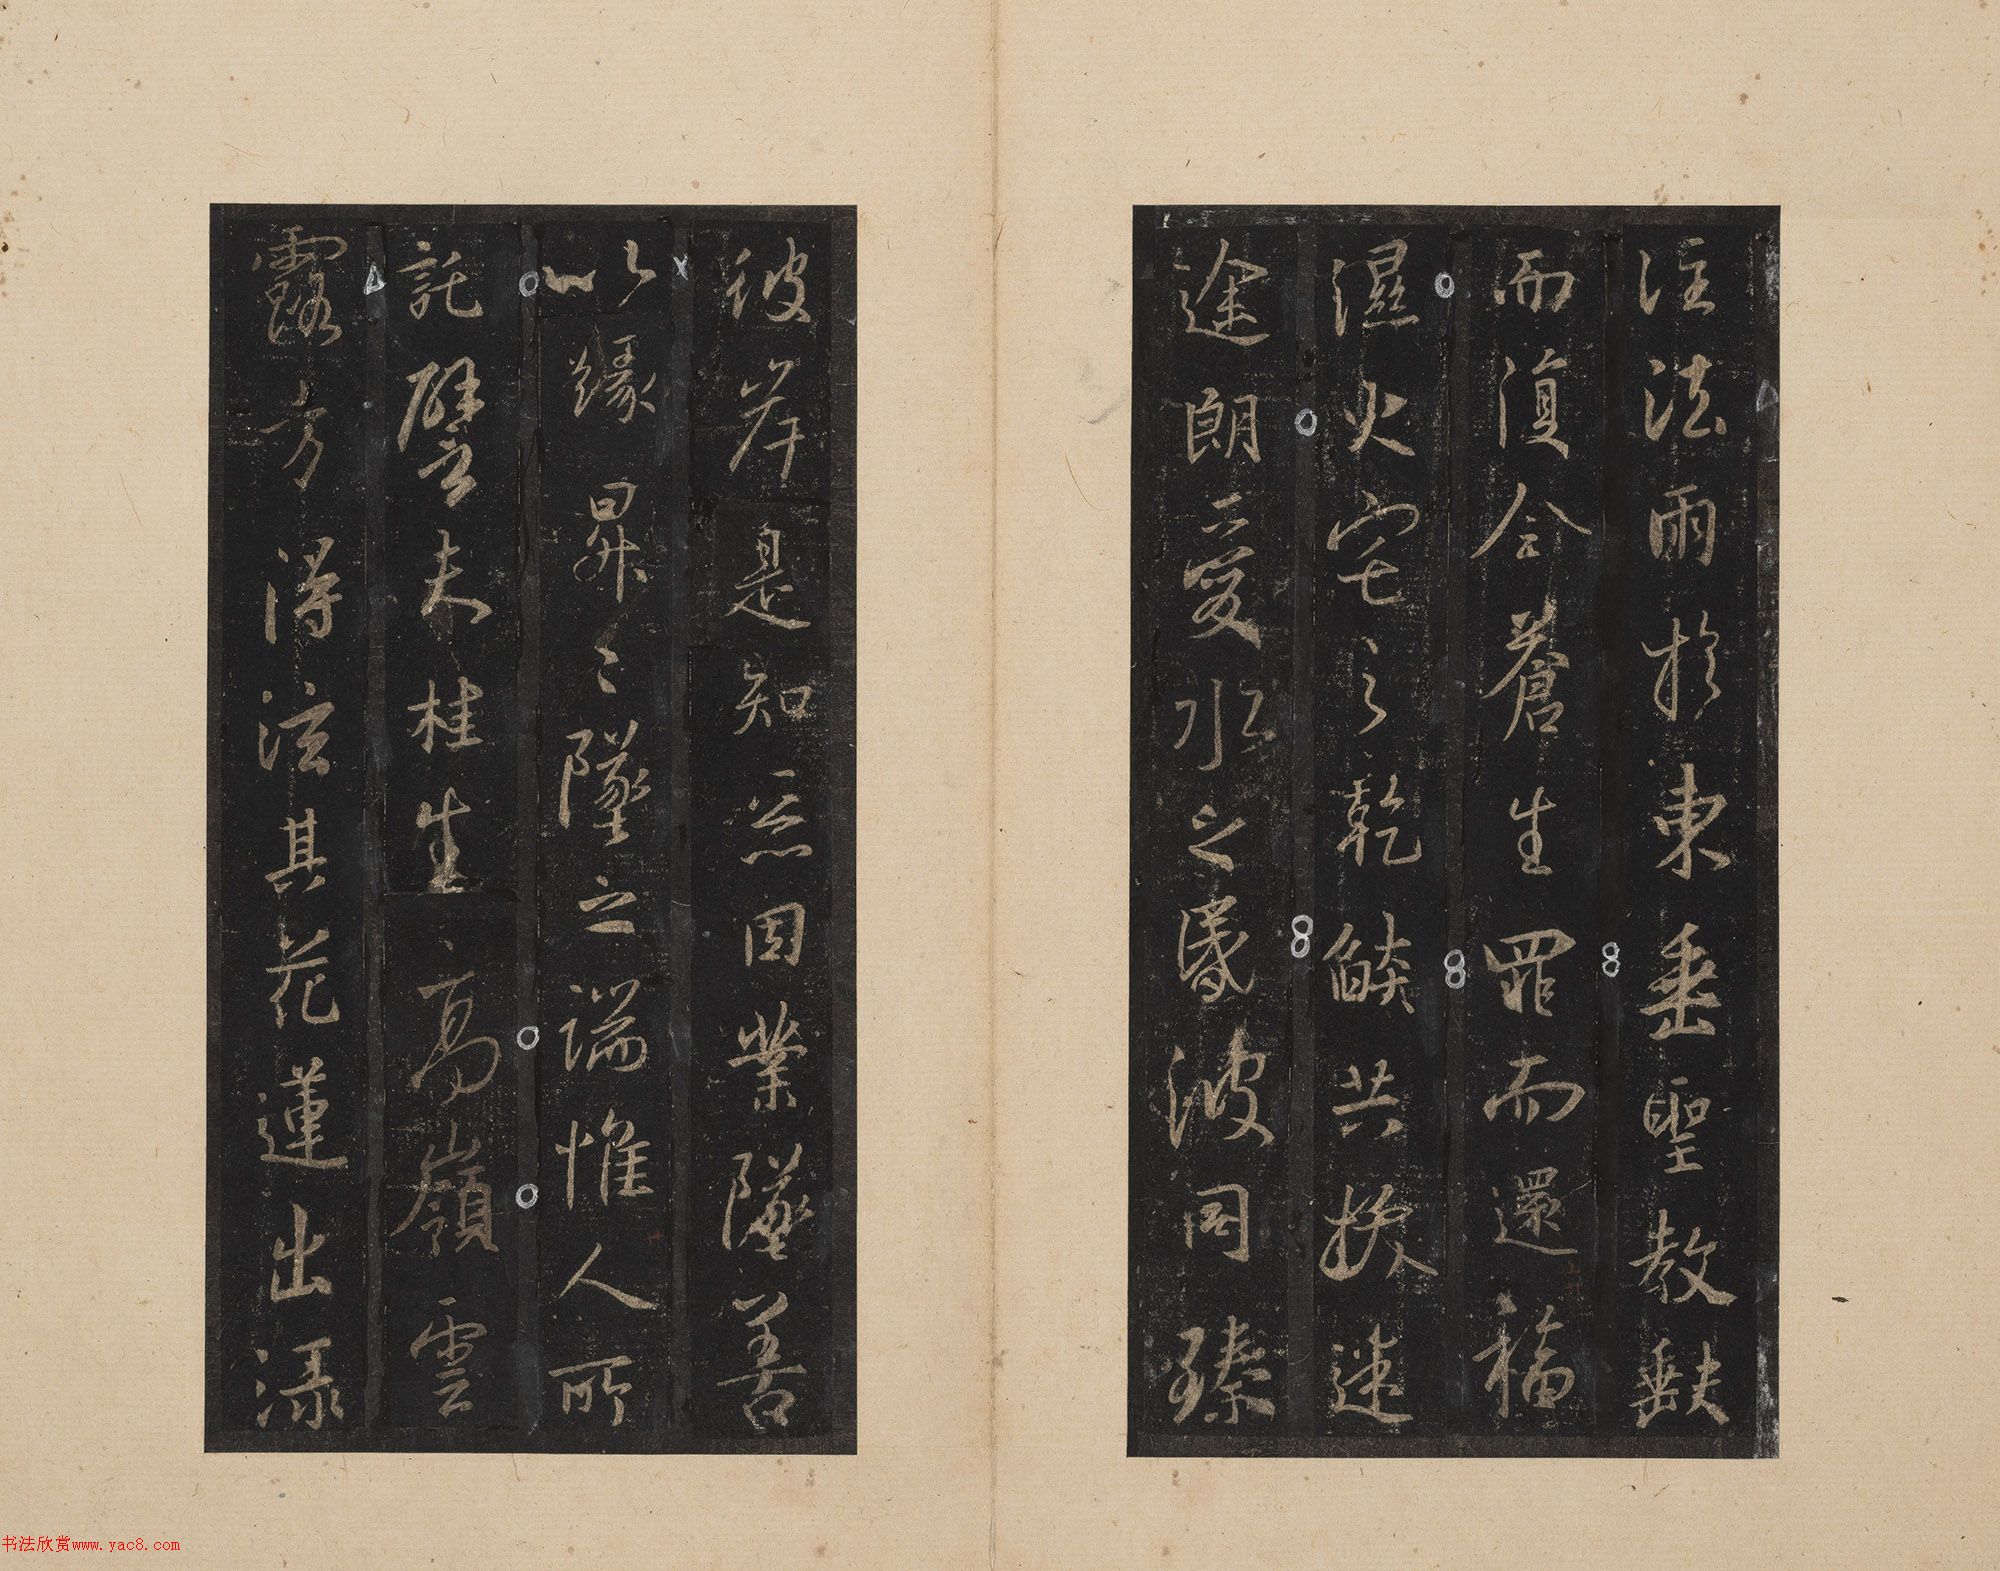 注法雨於東垂聖教缺
而復合蒼生罪而還福
濕火宅之乾燄共拔迷
途朗愛水之昏波同臻
彼岸是知惡因業墜善
以緣昇〻墜之端惟人所
託譬夫桂生高嶺雲
露方得泫其花蓮出淥
书法欣赏www.yac8.com